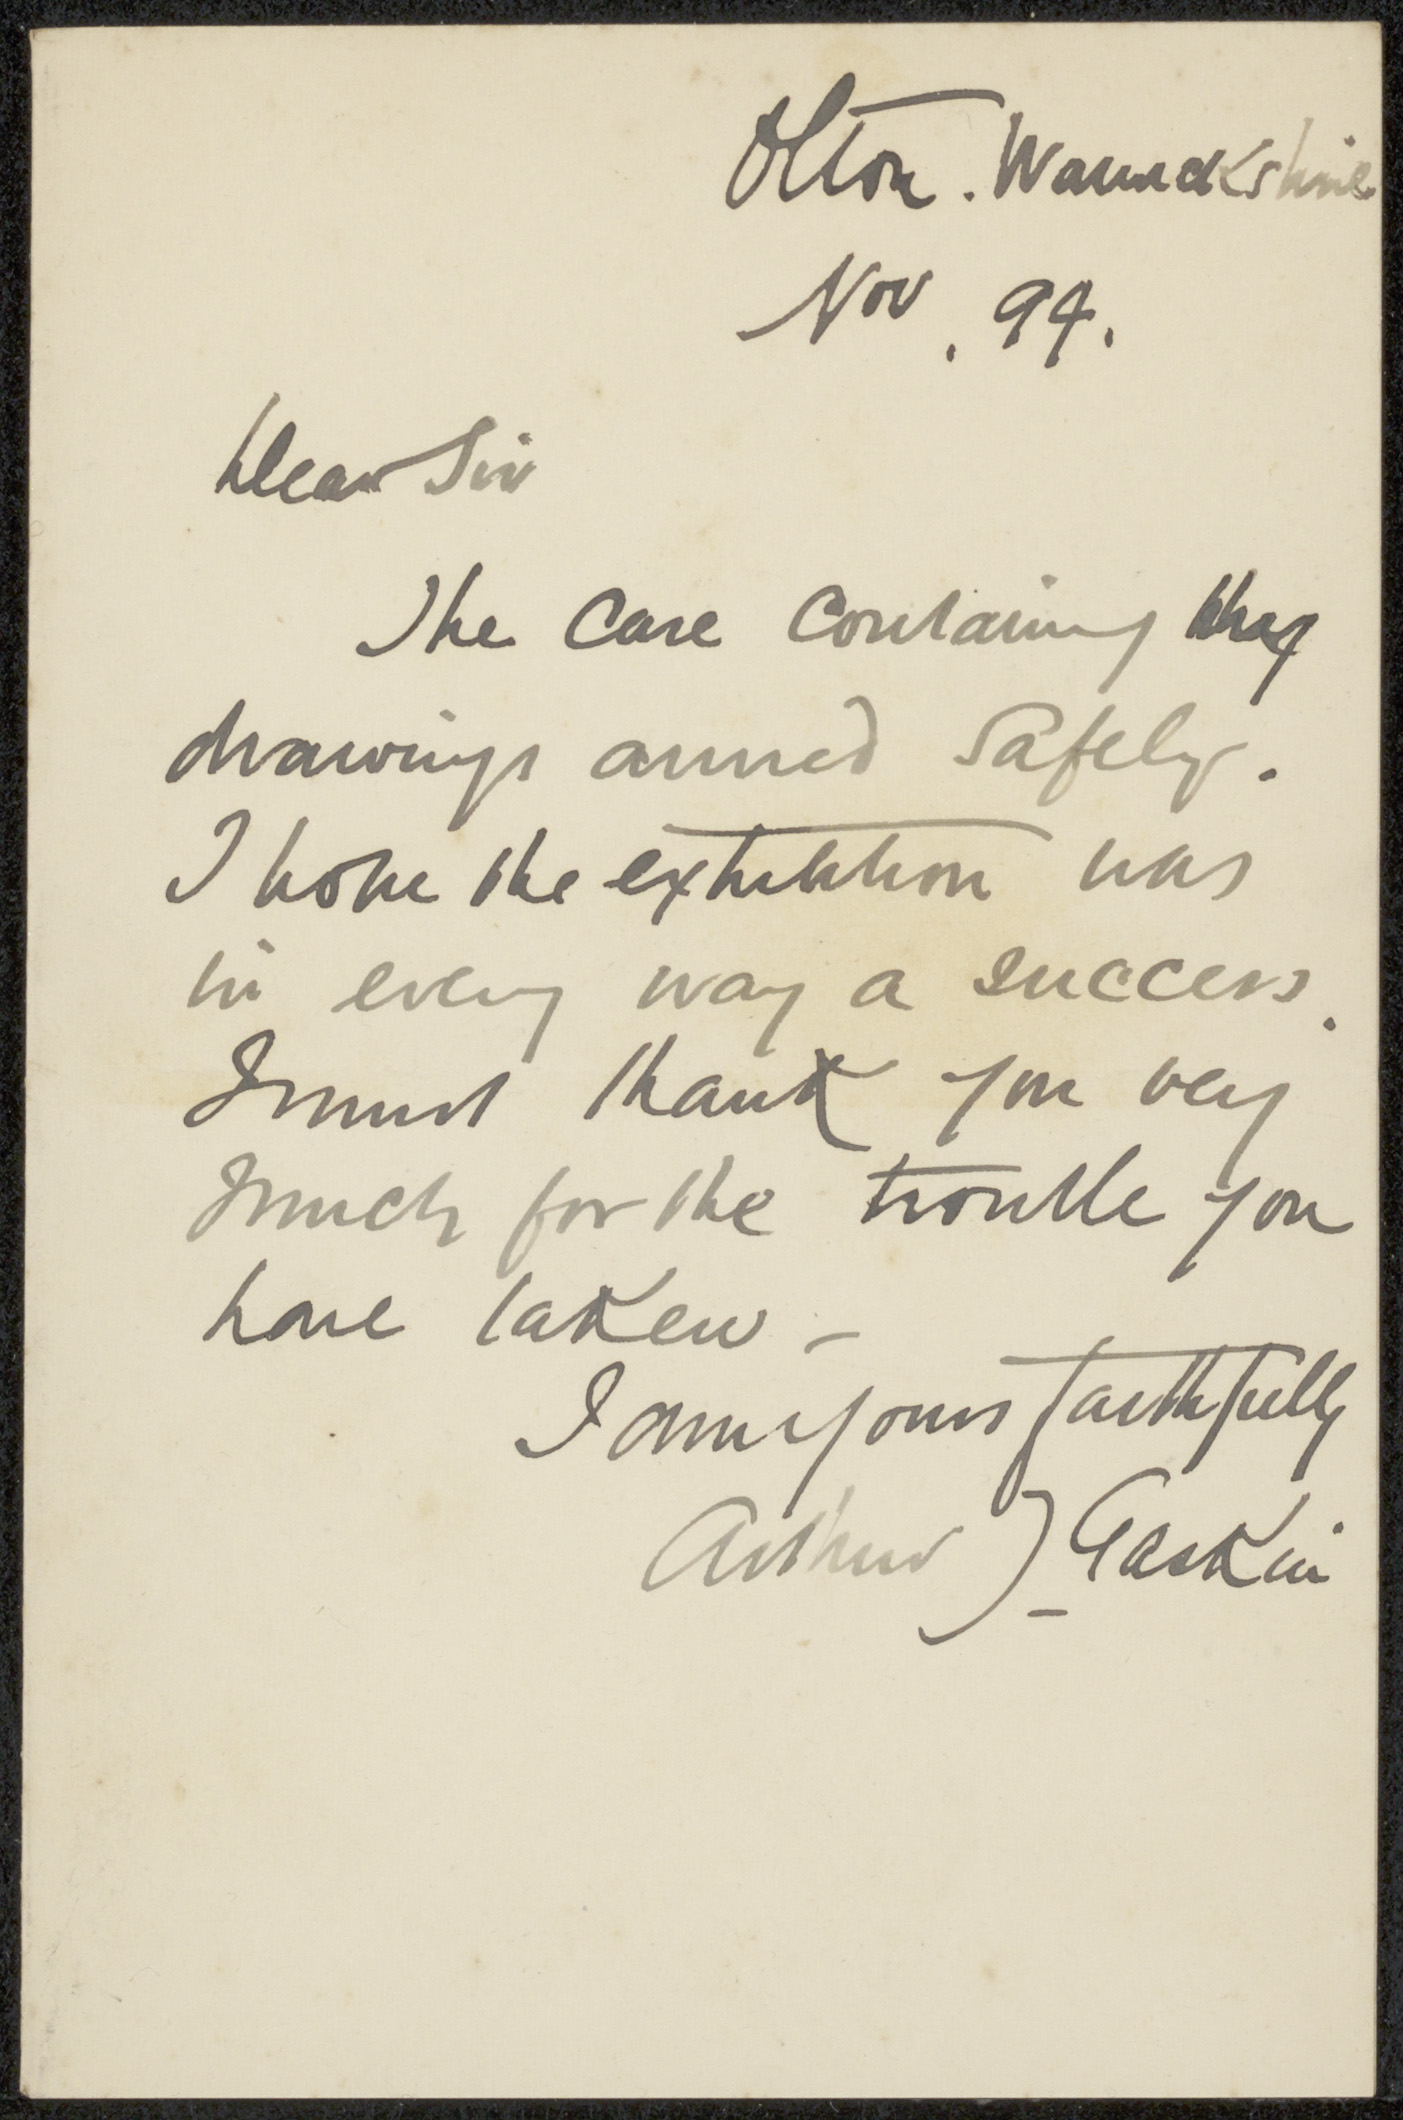 Olton. Warwickshire
Nov. 94.
Dear Sir
The case containing my
drawings arrived safely.
I hope the exhibition was
in every way a success.
I must thank you very
much for the trouble you
have taken –
I am yours faithfully
Arthur J. Gaskin